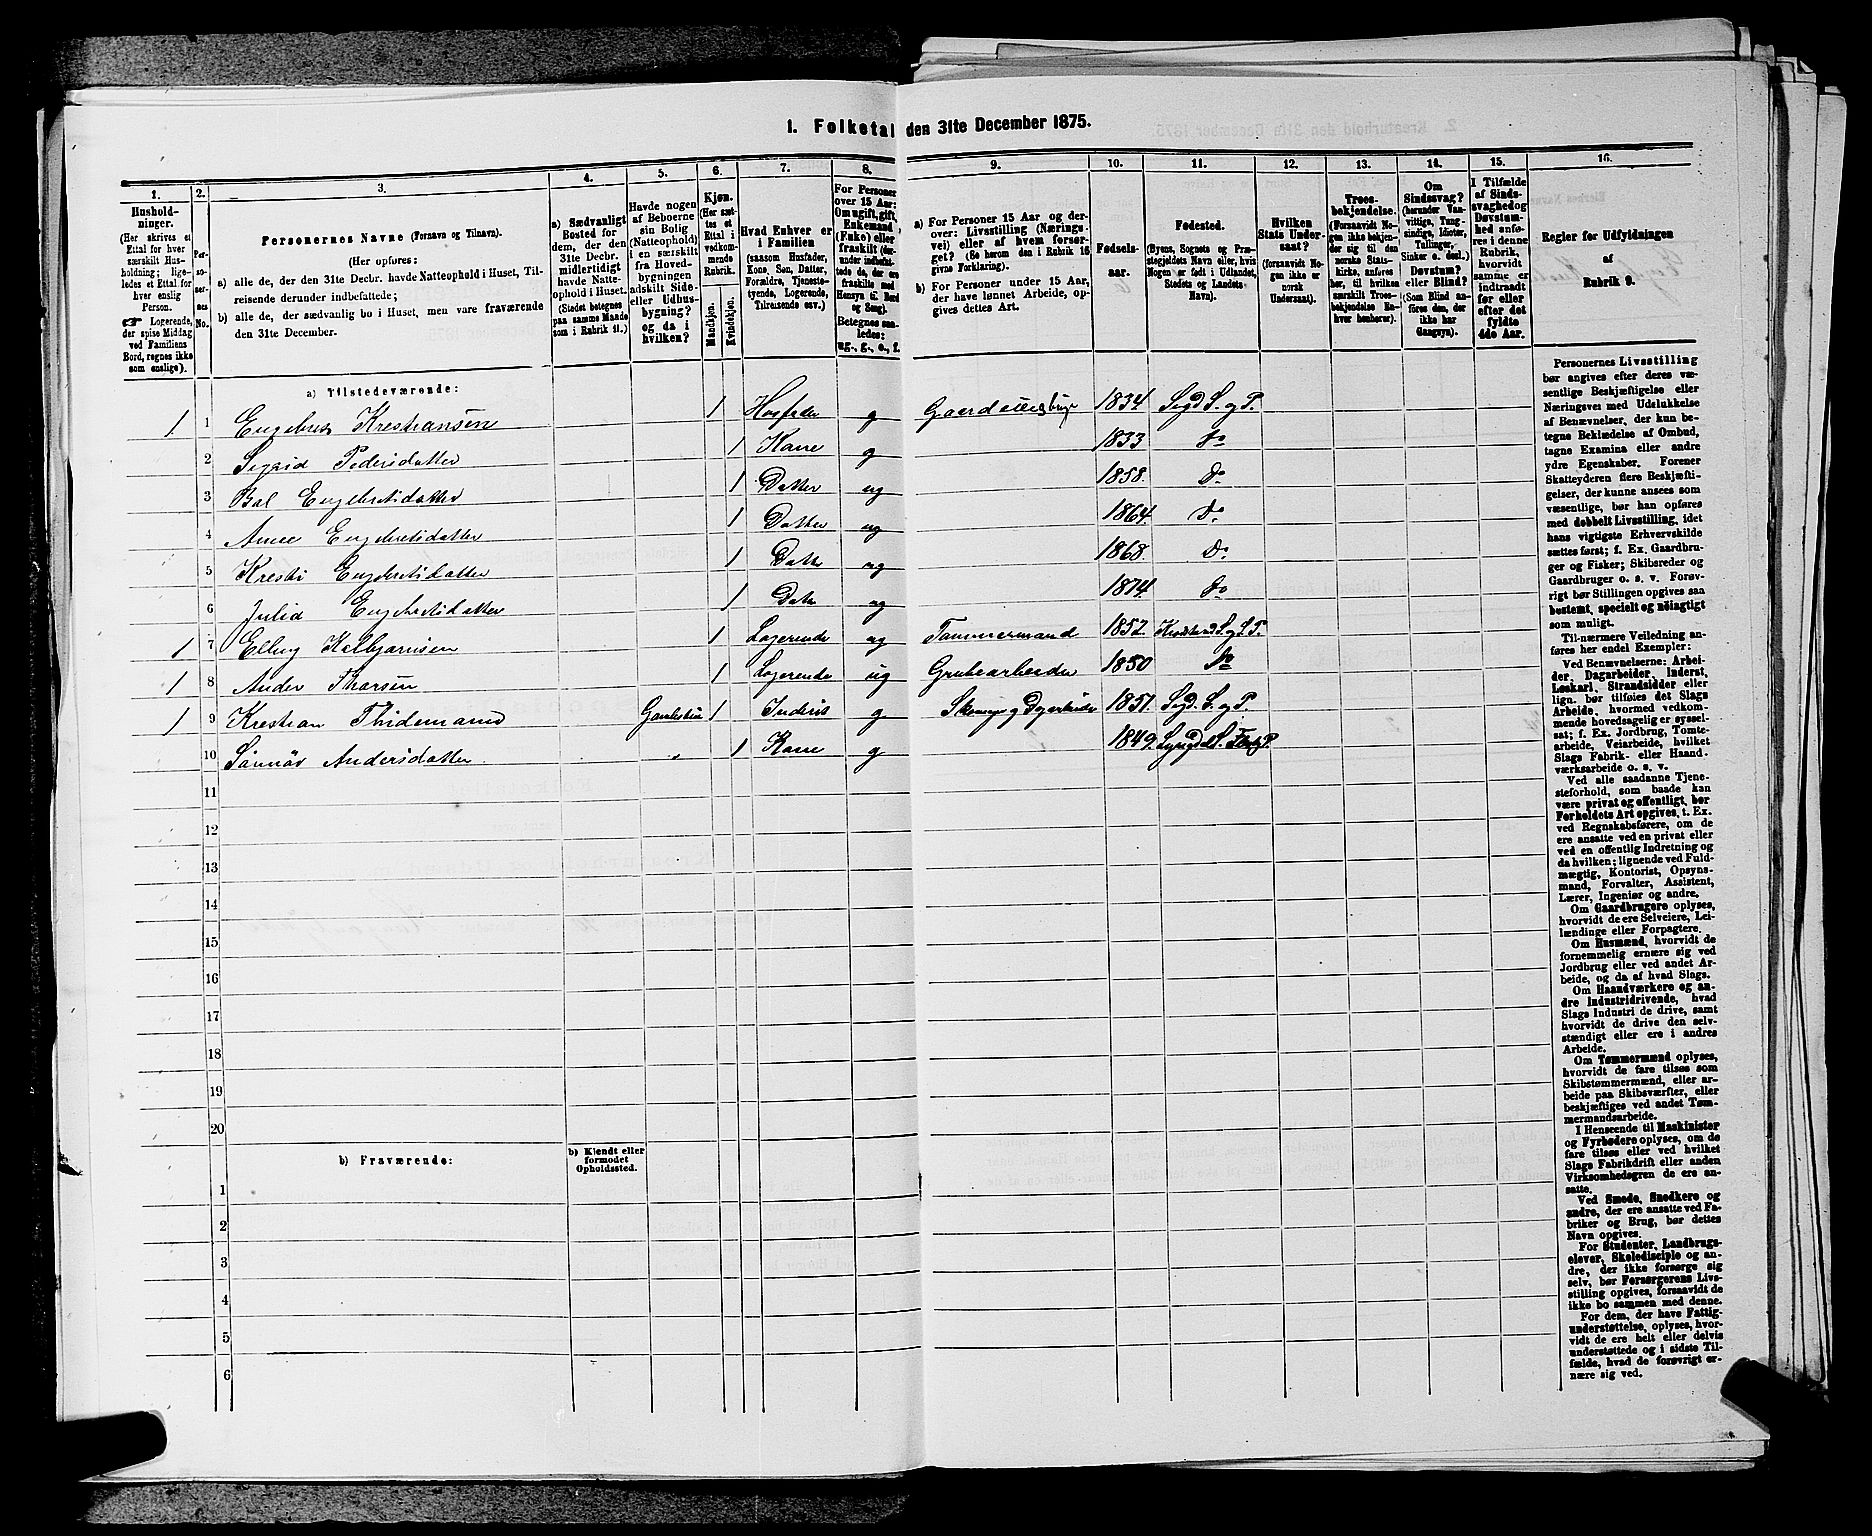 1. Folketal den 31te December 1875.
1. 2. 3. 4. 5. 6. 7. 8. 9. 10. 11. 12. 13. 14. 15. 16.
Hushold-
ninger.
(Her skrives et
Ettal for hver
særskilt Hus-
holdning; lige-
ledes et Ettal for
hver enslig
Person.
☛ Logerende,
der spise Middag
ved Familiens
Bord, regnes ikke
som enslige).
Per-
so-
ner-
nes
No.
Personernes Navne (Fornavn og Tilnavn).
(Her opføres:
a) alle de, der den 31te Decbr. havde Natteophold i Huset, Til-
reisende derunder indbefattede;
b) alle de, der sædvanlig bo i Huset, men vare fraværende
den 31te December.
a) Sædvanligt
Bosted for
dem, der den
31te Decbr.
midlertidigt
havde Natte-
ophold i Huset.
(Stedet betegnes
paa samme Maade
som i Rubrik 11.)
Havde nogen
af Beboerne
sin Bolig
(Natteophold)
i en særskilt
fra Hoved-
bygningen
adskilt Side-
eller Udhus-
bygning?
og da i
hvilken?
Kjøn.
(Her sæt-
tes et
Ettal i
vedkom-
mende
Rubrik.
Mandkjøn.
Kvindekjøn.
Hvad Enhver er
i Familien
(saasom Husfader,
Kone, Søn, Datter,
Forældre, Tjeneste-
tyende, Logerende,
Tilreisende osv.)
For Personer
over 15 Aar:
Om ugift, gift,
Enkemand
(Enke) eller
fraskilt (der-
under indbefat-
tede de, der ere
fraskilte med
Hensyn til Bord
og Seng).
Betegnes saa-
ledes:
ug., g., e., f.
a) For Personer 15 Aar og der-
over: Livsstilling (Nærings-
vei) eller af hvem forsør-
get? (Se herom den i Rubrik 16
givne Forklaring).
b) For Personer under 15 Aar,
der have lønnet Arbeide, op-
gives dettes Art.
Fødsels-
aar.
Fødested.
(Byens, Sognets og Præ-
stegjeldets Navn eller, hvis
Nogen er født i Udlandet,
Stedets og Landets
Navn).
Hvilken
Stats Under-
saat?
(forsaavidt No-
gen ikke er
norsk
Undersaat).
Troes-
bekjendelse.
(Forsaavidt No-
gen ikke bekjen-
der sig til den
norske Stats-
kirke, anføres
her, til hvilken
særskilt Troes-
bekjendelse En-
hver henhører).
Om
Sindssvag?
(herunder Van-
vittige, Tung-
sindige, Idioter,
Tullinger,
Sinker o. desl.)
Døvstum?
eller Blind?
(Som Blind an-
føres den, der
ikke har
Gangsyn).
I Tilfælde
af Sinds-
svaghed og
Døvstum-
hed anfø-
res i denne
Rubrik,
hvorvidt
samme er
indtraadt
før eller
efter det
fyldte
4de Aar.
Regler for Udfyldningen
af
Rubrik 9.
a) Tilstedeværende:
1 1 Engebret Krestiansen 1 Husfader g Gaardbruger 1834. Sigd S. og P.
2 Sigrid Pedersdatter 1 Kone g 1833 Do
3 Engebretsdatter 1 Datter ug 1858. Do
4 Anne Engebretsdatter 1 Datter ug 1864. Do
5 Kresti Engebretsdatter 1 Datter ug 1868. Do
6 Julia Engebretsdatter 1 Datter ug 1874. Do
1 7 Elling 1 Logerende ug Tømmermand 1852. S. og P.
1 8 Anders Thorsen 1 Logerende ug Grubearbeider 1850 Do
1 9 Krestian Thidemand 1 Inderst g og 1851. Sigd. S. og P.
10 Andersdatter „ 1 Kone g 1849. S.
11
12
13
14
15
16
17
18
19
20
b) Fraværende:
b) Kjendt eller
formodet
Opholdssted.
1
2
3
4
5
6
Personernes Livsstilling
bør angives efter deres væ-
sentlige Beskjæftigelse eller
Næringsvei med Udelukkelse
af Benævnelser, der kun be-
tegne Beklædelse af Ombud,
tagne Examina eller andre
ydre Egenskaber. Forener
Skatteyderen flere Beskjæfti-
gelser, der kunne ansees som
væsentlige, bør han opføres
med dobbelt Livsstilling, idet
hans vigtigste Erhvervskilde
sættes først; f. Ex. Gaardbru-
ger og Fisker; Skibsreder og
Gaardbruger o. s. v. Forøv-
rigt bør Stillingen opgives saa
bestemt, specielt og nøiagtigt
som muligt.
Til nærmere Veiledning an-
føres her endel Exempler:
Ved Benævnelserne: Arbei-
der, Dagarbeider, Inderst,
Løskarl, Strandsidder eller
lign. bør tilføies det Slags
Arbeide, hvormed vedkom-
mende hovedsagelig er syssel-
sat; f. Ex. Jordbrug, Tomte-
arbeide, Veiarbeide, hvilket
Slags Fabrik- eller Haand-
værksarbeide o. s. v.
Ved alle saadanne Tjene-
steforhold, som baade kan
være privat og offentligt, bør
Forholdets Art opgives, t. Ex.
ved Regnskabsførere, om de
ere ansatte ved en privat eller
ved en offentlig Indretning og
da hvilken; lignende ved Fuld-
mægtig, Kontorist, Opsyns-
mand, Forvalter, Assistent,
Lærer, Ingeniør og andre.
Om Gaardbrugere oplyses,
hvorvidt de ere Selveiere, Lei-
lændinge eller Forpagtere.
Om Husmænd, hvorvidt de
fornemmelig ernære sig ved
Jordbrug eller ved andet Ar-
beide, og da af hvad Slags.
Om Haandværkere og an-
dre Industridrivende, hvad
Slags Industri de drive, samt
hvorvidt de drive den selv-
stændigt eller ere i andres
Arbeide.
Om Tømmermænd oplyses,
hvorvidt de fare tilsøs som
Skibstømmermænd, eller ar-
beide paa Skibsværfter, eller
beskjæftiges ved andet Tøm-
mermandsarbeide.
I Henseende til Maskinister
og Fyrbødere oplyses, om de
fare tilsøs eller ved hvilket
Slags Fabrikdrift eller anden
Virksomhedsgren de ere an-
satte.
Ved Smede, Snedkere og
andre, der ere ansatte ved Fa-
briker og Brug, bør dettes
Navn opgives.
For Studenter, Landbrugs-
elever, Skoledisciple og an-
dre, der ikke forsørge sig
selv, bør Forsørgerens Livs-
stilling opgives, forsaavidt de
ikke bo sammen med denne.
For dem, der have Fattig-
understøttelse, oplyses, hvor-
vidt de ere helt eller delvis
understøttede og i sidste Til-
fælde, hvad de forøvrigt er-
nære sig ved.